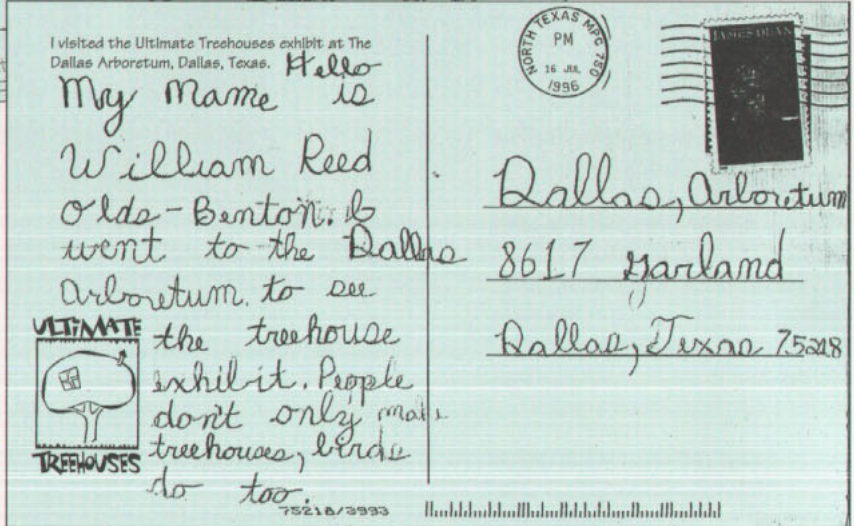 I visited the Ultimate Treehouses exhibit at The
Dallas Arboretum, Dallas, Texas.
Hello
My Name is
William Reed
Olds-Benton. I
went to the Dallas
Arboretum. to see
the treehouse
exhibit. People
don't only make
treehouses, birds
do too.
ULTIMATE
TREEHOUSES
75218/3993
NORTH TEXAS MPC 750
PM
16 JUL
1996
JAMES DEAN
Dallas, Arboretum
8617 Garland
Dallas, Texas 75218